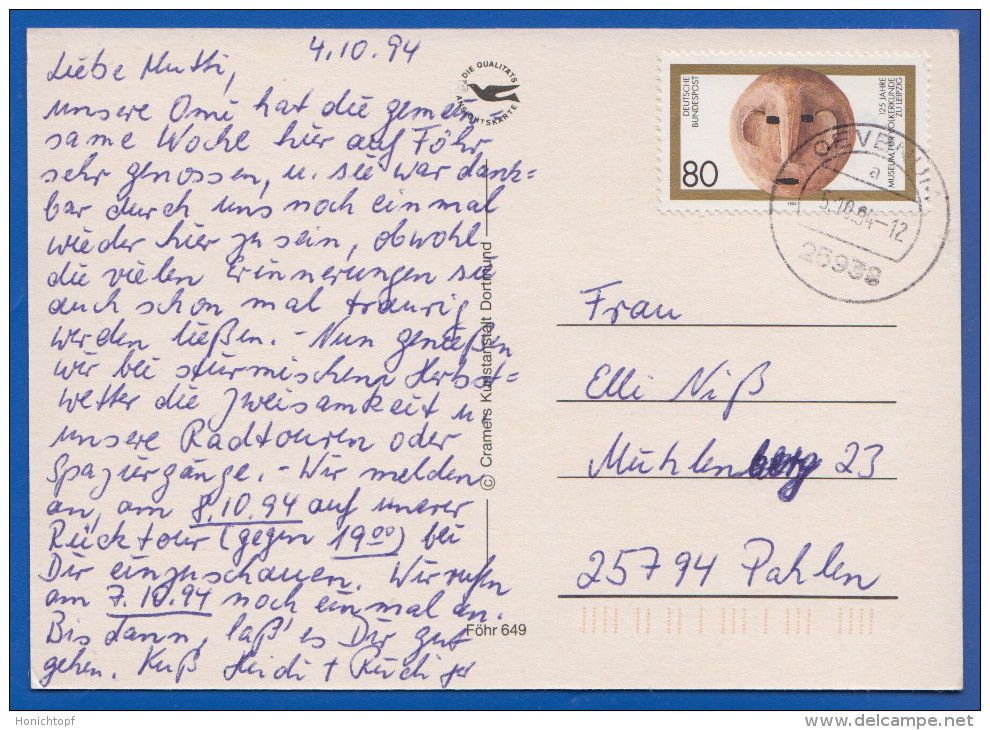 4.10.94
Liebe Mutti,
unsere Omi hat die gemein=
same Woche hier auf Föhr
sehr genossen, u. sie war dank=
bar durch uns noch einmal
wieder hier zu sein, obwohl
die vielen Erinnerungen sie
auch schon mal traurig
werden ließen. - Nun genießen
wir bei stürmischem Herbst=
wetter die Zweisamkeit u.
unsere Radtouren oder
Spaziergänge. - Wir melden
an, am 8.10.94 auf unserer
Rücktour (gegen 19⁰⁰) bei
Dir einzuschauen. Wir rufen
am 7.10.94 noch einmal an.
Bis dann, laß' es Dir gut
gehen. Kuß Heidi + Rüdiger
DIE QUALITÄTS
ANSICHTSKARTE
© Cramers Kunstanstalt Dortmund
Föhr 649
DEUTSCHE
BUNDESPOST
80
125 JAHRE
MUSEUM FÜR VÖLKERKUNDE
ZU LEIPZIG
OEVENUM
a
5.10.94-12
25938
Frau
Elli Niß
Mühlenberg 23
25794 Pahlen
Honichtopf
www.delcampe.net